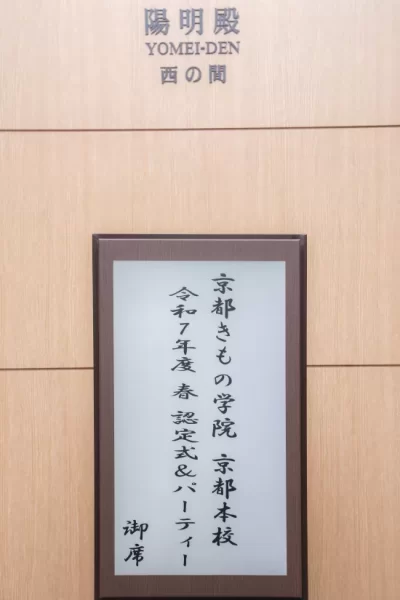 陽明殿
YOMEI-DEN
西の間
京都きもの学院 京都本校
令和7年度 春 認定式&パーティー
御席